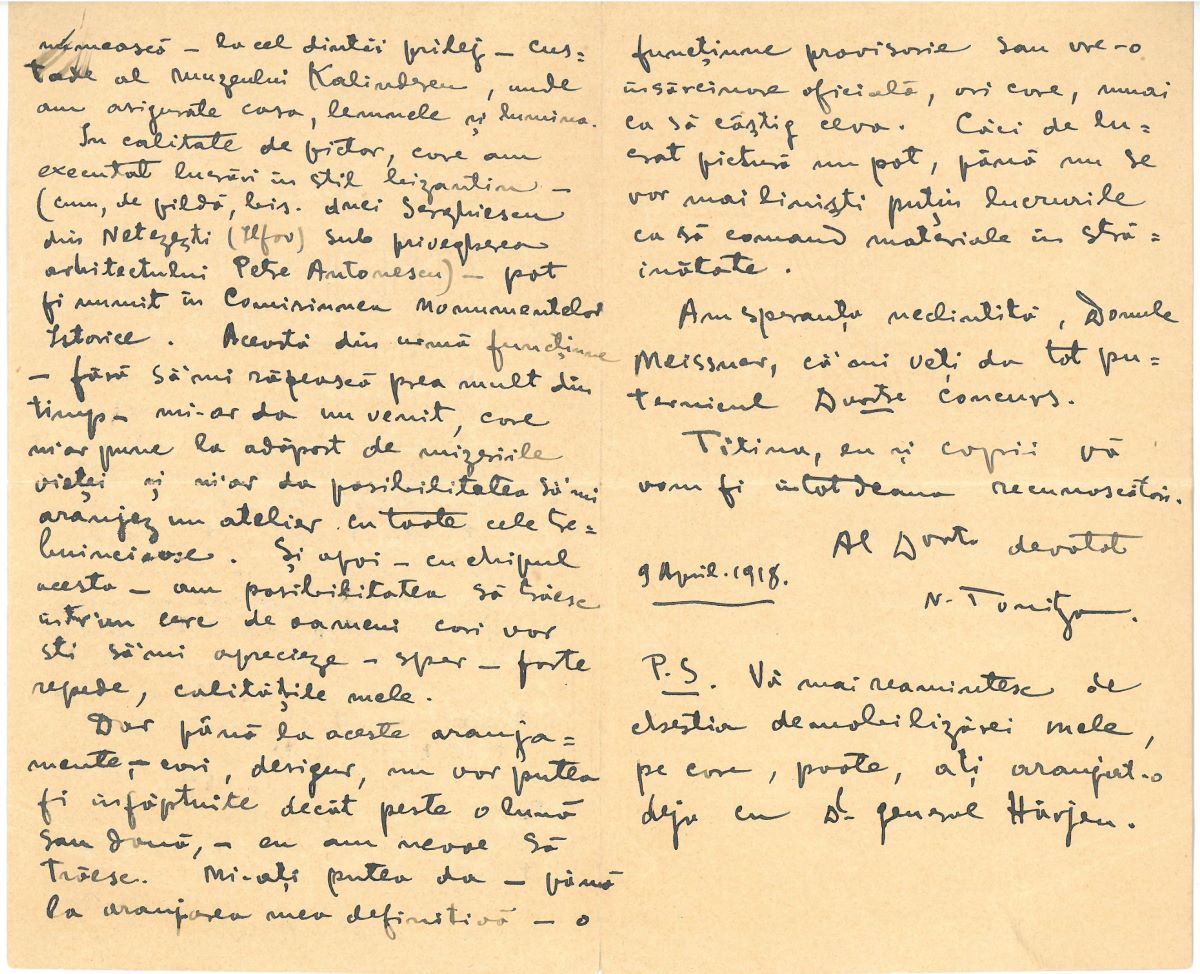 numească – la cel dintâi prilej – cus=
tode al muzeului Kalinderu, unde
am asigurate casa, lemnele și lumina.
In calitate de pictor, care am
executat lucrări în stil bizantin –
(cum, de pildă, bis. dnei Serghiescu
din Netezești (Ilfov) sub privegherea
arhitectului Petre Antonescu) – pot
fi numit în Comisiunea Monumentelor
Istorice. Această din urmă funcțiune
– fără să'mi răpească prea mult din
timp – mi-ar da un venit, care
m'ar pune la adăpost de mizeriile
vieței și m'ar da posibilitatea să'mi
aranjez un atelier cu toate cele tre=
buincioase. Și apoi – cu chipul
acesta – am posibilitatea să trăesc
intr'un cerc de oameni cari vor
sti să'mi aprecieze – sper – forte
repede, calitățile mele.
Dar până la aceste aranja=
mente, – cari, desigur, nu vor putea
fi infăptuite decât peste o lună
sau două, – eu am nevoe să
trăesc. Mi-ați putea da – până
la aranjarea mea definitivă – o
funcțiune provisorie sau vre-o
însărcinare oficială, ori care, numai
ca să câștig ceva. Căci de lu=
crat pictură nu pot, până nu se
vor mai liniști puțin lucrurile
ca să comand materiale în stră=
inătate.
Am speranța neclintită, Domnule
Meissner, că'mi veți da tot pu=
ternicul Dvstre concurs.
Titina, eu și copii vă
vom fi intotdeauna recunoscători.
Al Dvstră devotat
9 April. 1918.
N. Tonitza.
P.S. Vă mai reamintesc de
chestia demobilizărei mele,
pe care, poate, ați aranjat-o
deja cu Dl general Hârjeu.